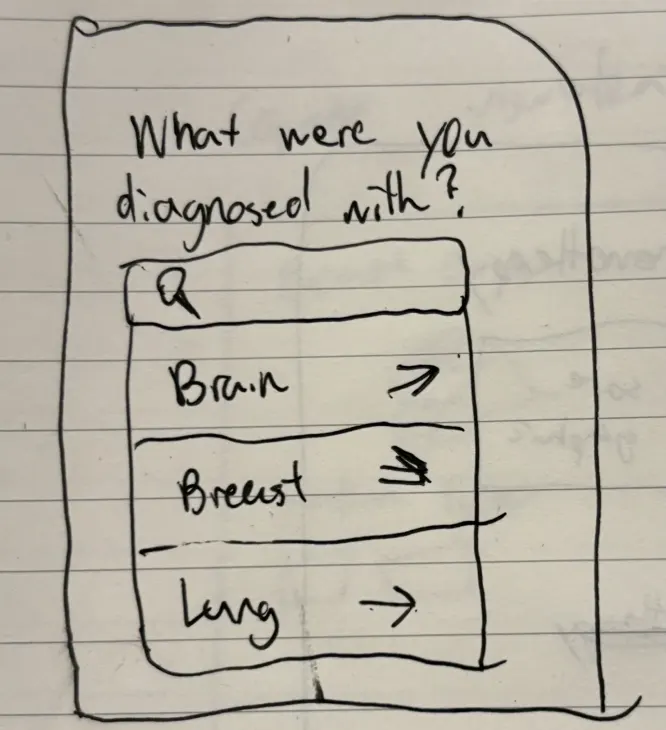 What were you
diagnosed with?
Brain
Breast
Lung